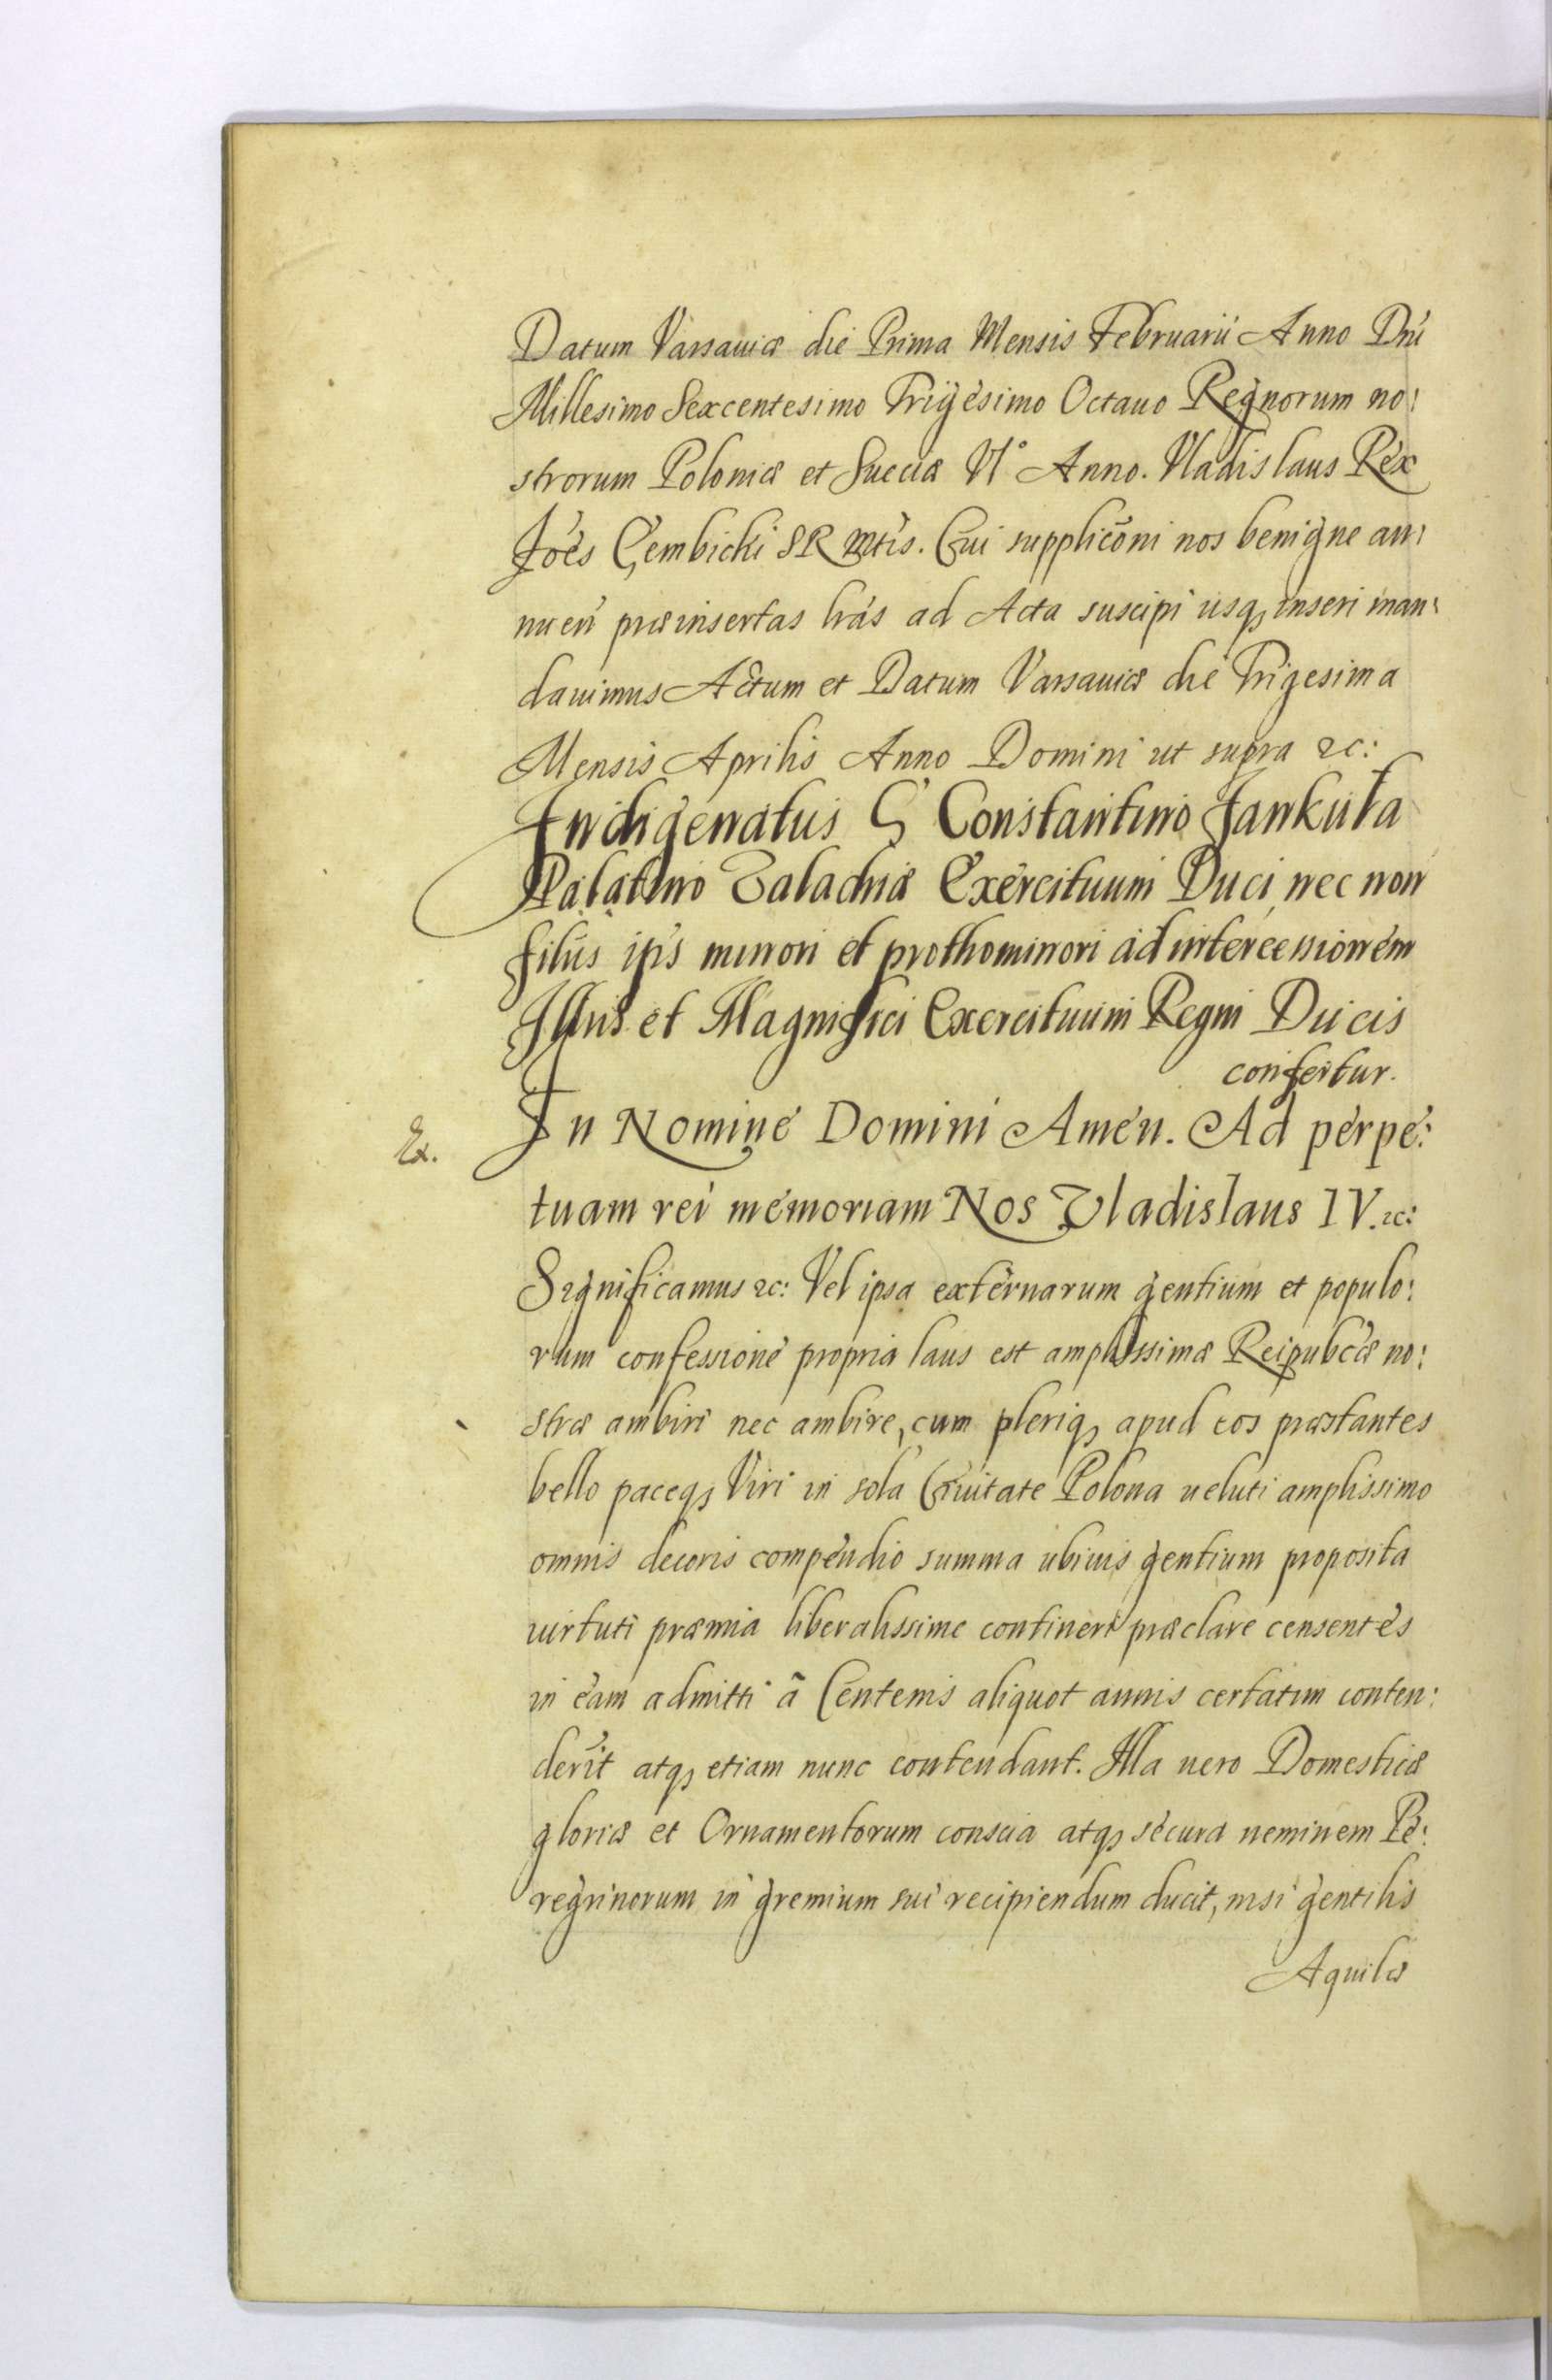 Datum Varsauiæ die Prima Mensis Februarii Anno Dni
Millesimo Sexcentesimo Trigesimo Octauo Regnorum no:
strorum Poloniæ et Sueciæ VI° Anno. Vladislaus Rex
Joes Gembicki SR Mtis. Cui supplicõni nos benigne an:
nuen præinsertas lras ad Acta suscipi usq₃ inseri man:
dauimus Actum et Datum Varsauiæ die Trigesima
Mensis Aprilis Anno Domini ut supra ꝛc:
Indigenatus G Constantino Jankuła
Palatino Valachiæ Exercituum Duci nec non
filiis ips minori et prothominori ad intercessionem
Illmi et Magnifici Exercituum Regni Ducis
confertur.
Ex. In Nomine Domini Amen. Ad perpe:
tuam rei memoriam Nos Vladislaus IV. ꝛc:
Significamus ꝛc: Vel ipsa externarum gentium et populo:
rum confessione propria laus est amplissimæ Reipubcæ no:
stræ ambiri nec ambire, cum pleriq₃ apud eos præstantes
bello paceq₃ Viri in sola Ciuitate Polona ueluti amplissimo
omnis decoris compendio summa ubiuis gentium proposita
uirtuti præmia liberalissime contineri præclare censentes
in eam admitti ã Centenis aliquot annis certatim conten:
derĩt atq₃ etiam nunc contendant. Illa uero Domesticæ
gloriæ et Ornamentorum conscia atq₃ secura neminem Pe:
regrinorum in gremium sui recipiendum ducit, nisi gentilis
Aquilæ